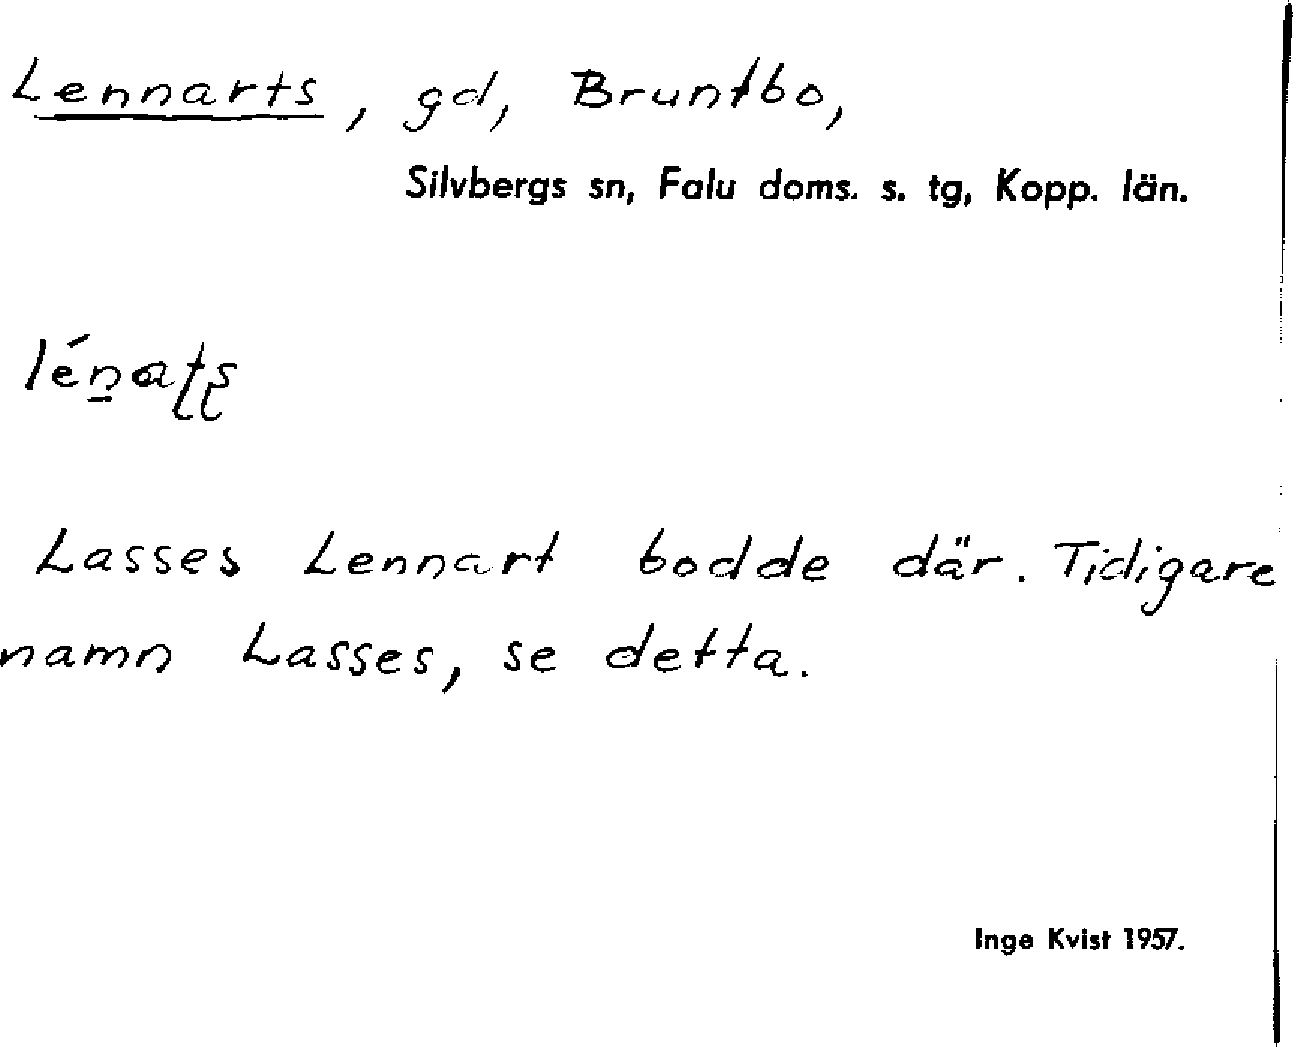 Lennarts, gd, Bruntbo,
Silvbergs sn, Falu doms. s. tg, Kopp. län.
lén̲aʈʂ
Lasses Lennart bodde där. Tidigare
namn Lasses, se detta.
Inge Kvist 1957.